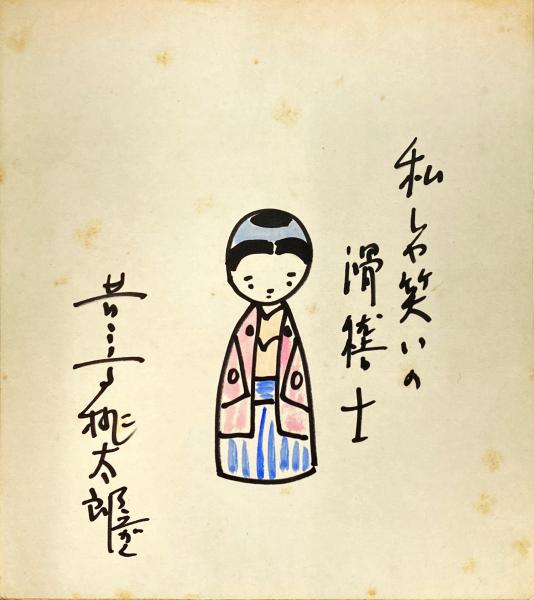 私しゃ笑いの
滑稽士
昔々亭桃太郎